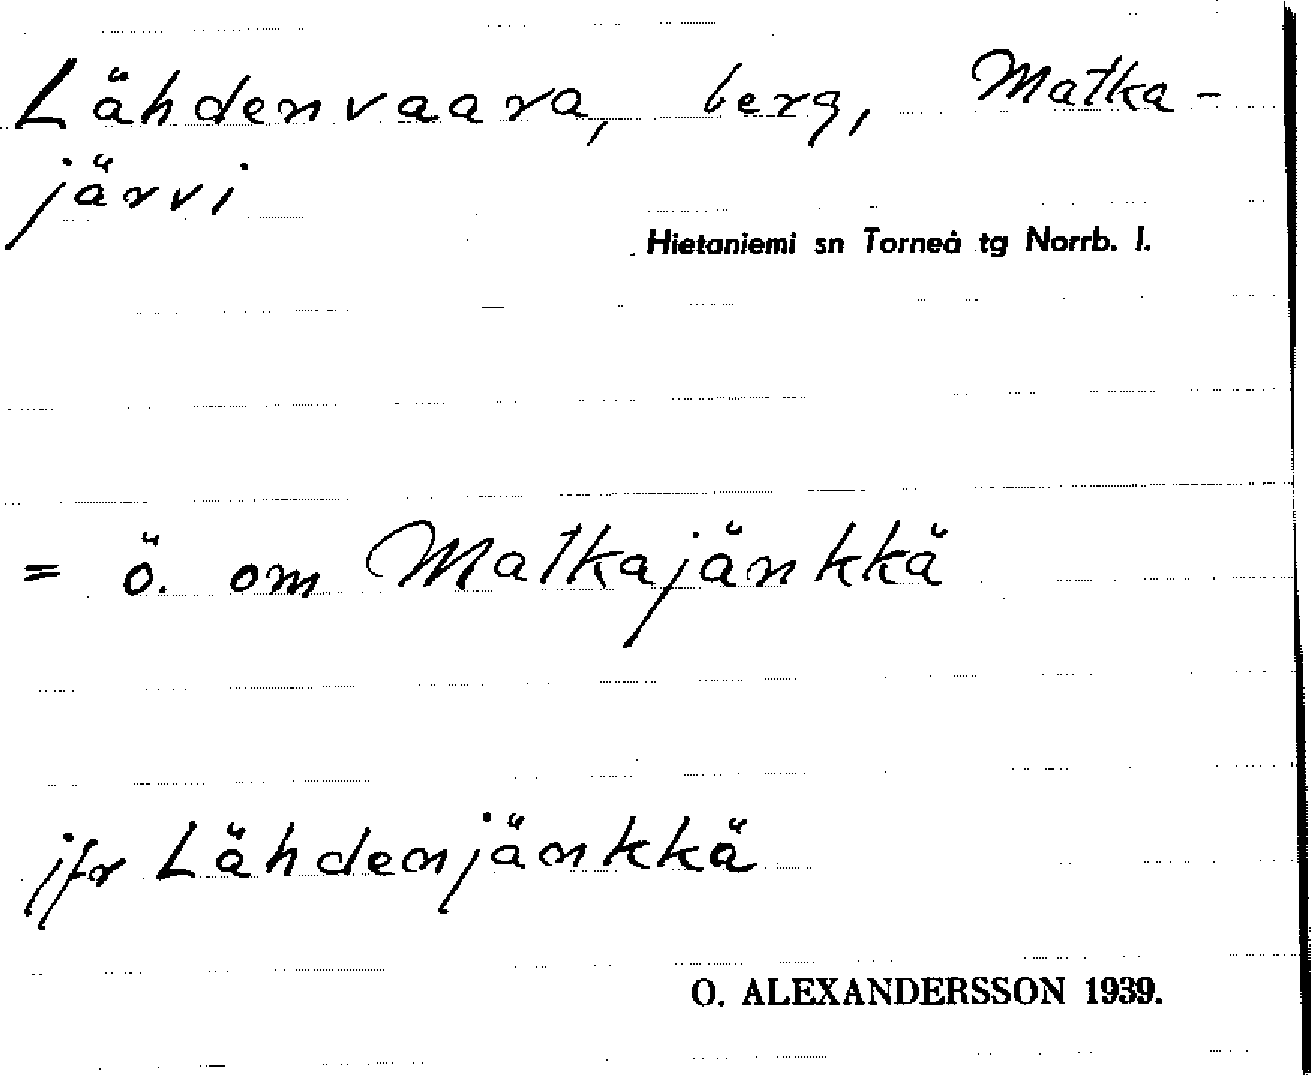 Lähdenvaara, berg, Matka-
järvi
Hietaniemi sn Torneå tg Norrb. l.
= ö. om Matkajänkkä
jfr Lähdenjänkkä
O. ALEXANDERSSON 1939.